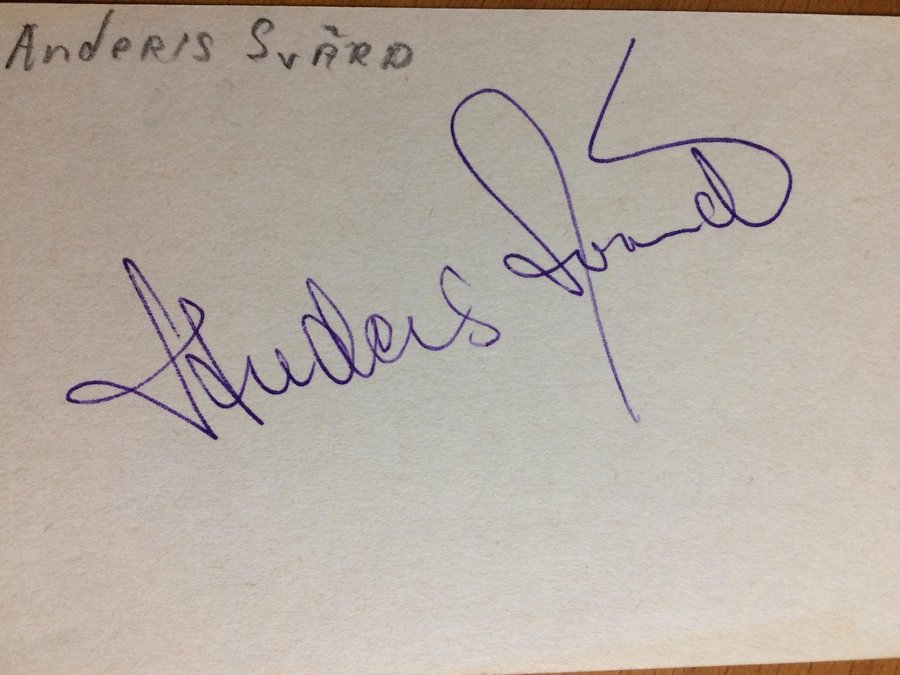 Anderis Svärd
Anders Svärd